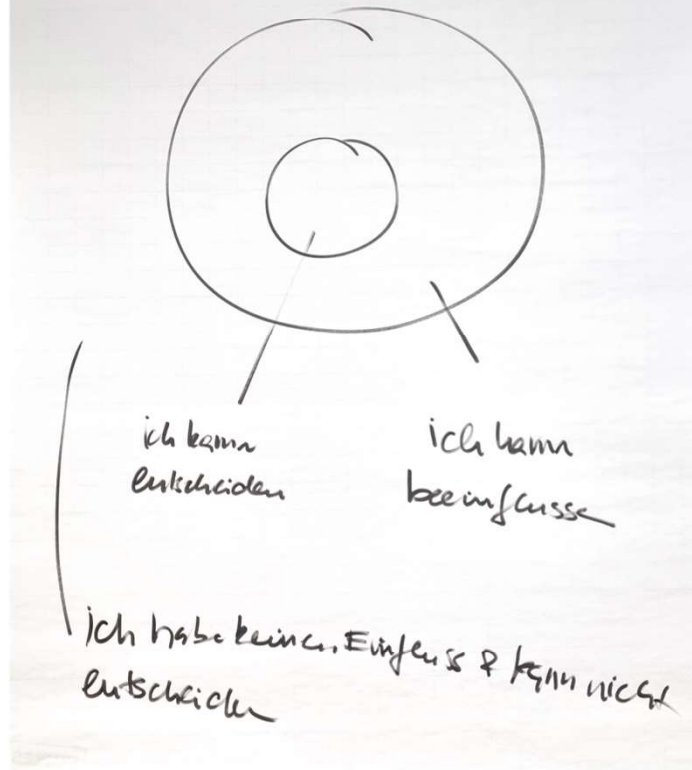 ich kann
entscheiden
ich kann
beeinflussen
ich habe keinen Einfluss & kann nicht
entscheiden